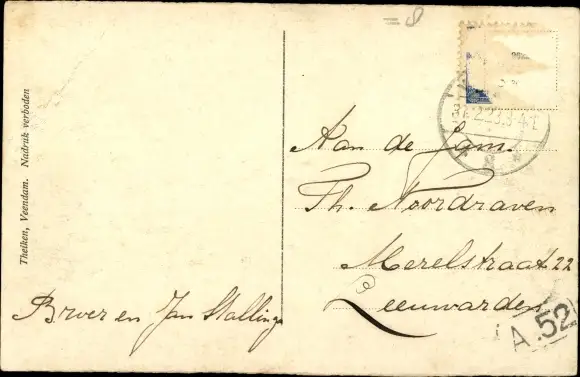 Thelken, Veendam. Nadruk verboden
Aan de Fam.
Th. Noordraven
Merelstraat 22
Leeuwarden
Brver en Jan Stallinga
A .52